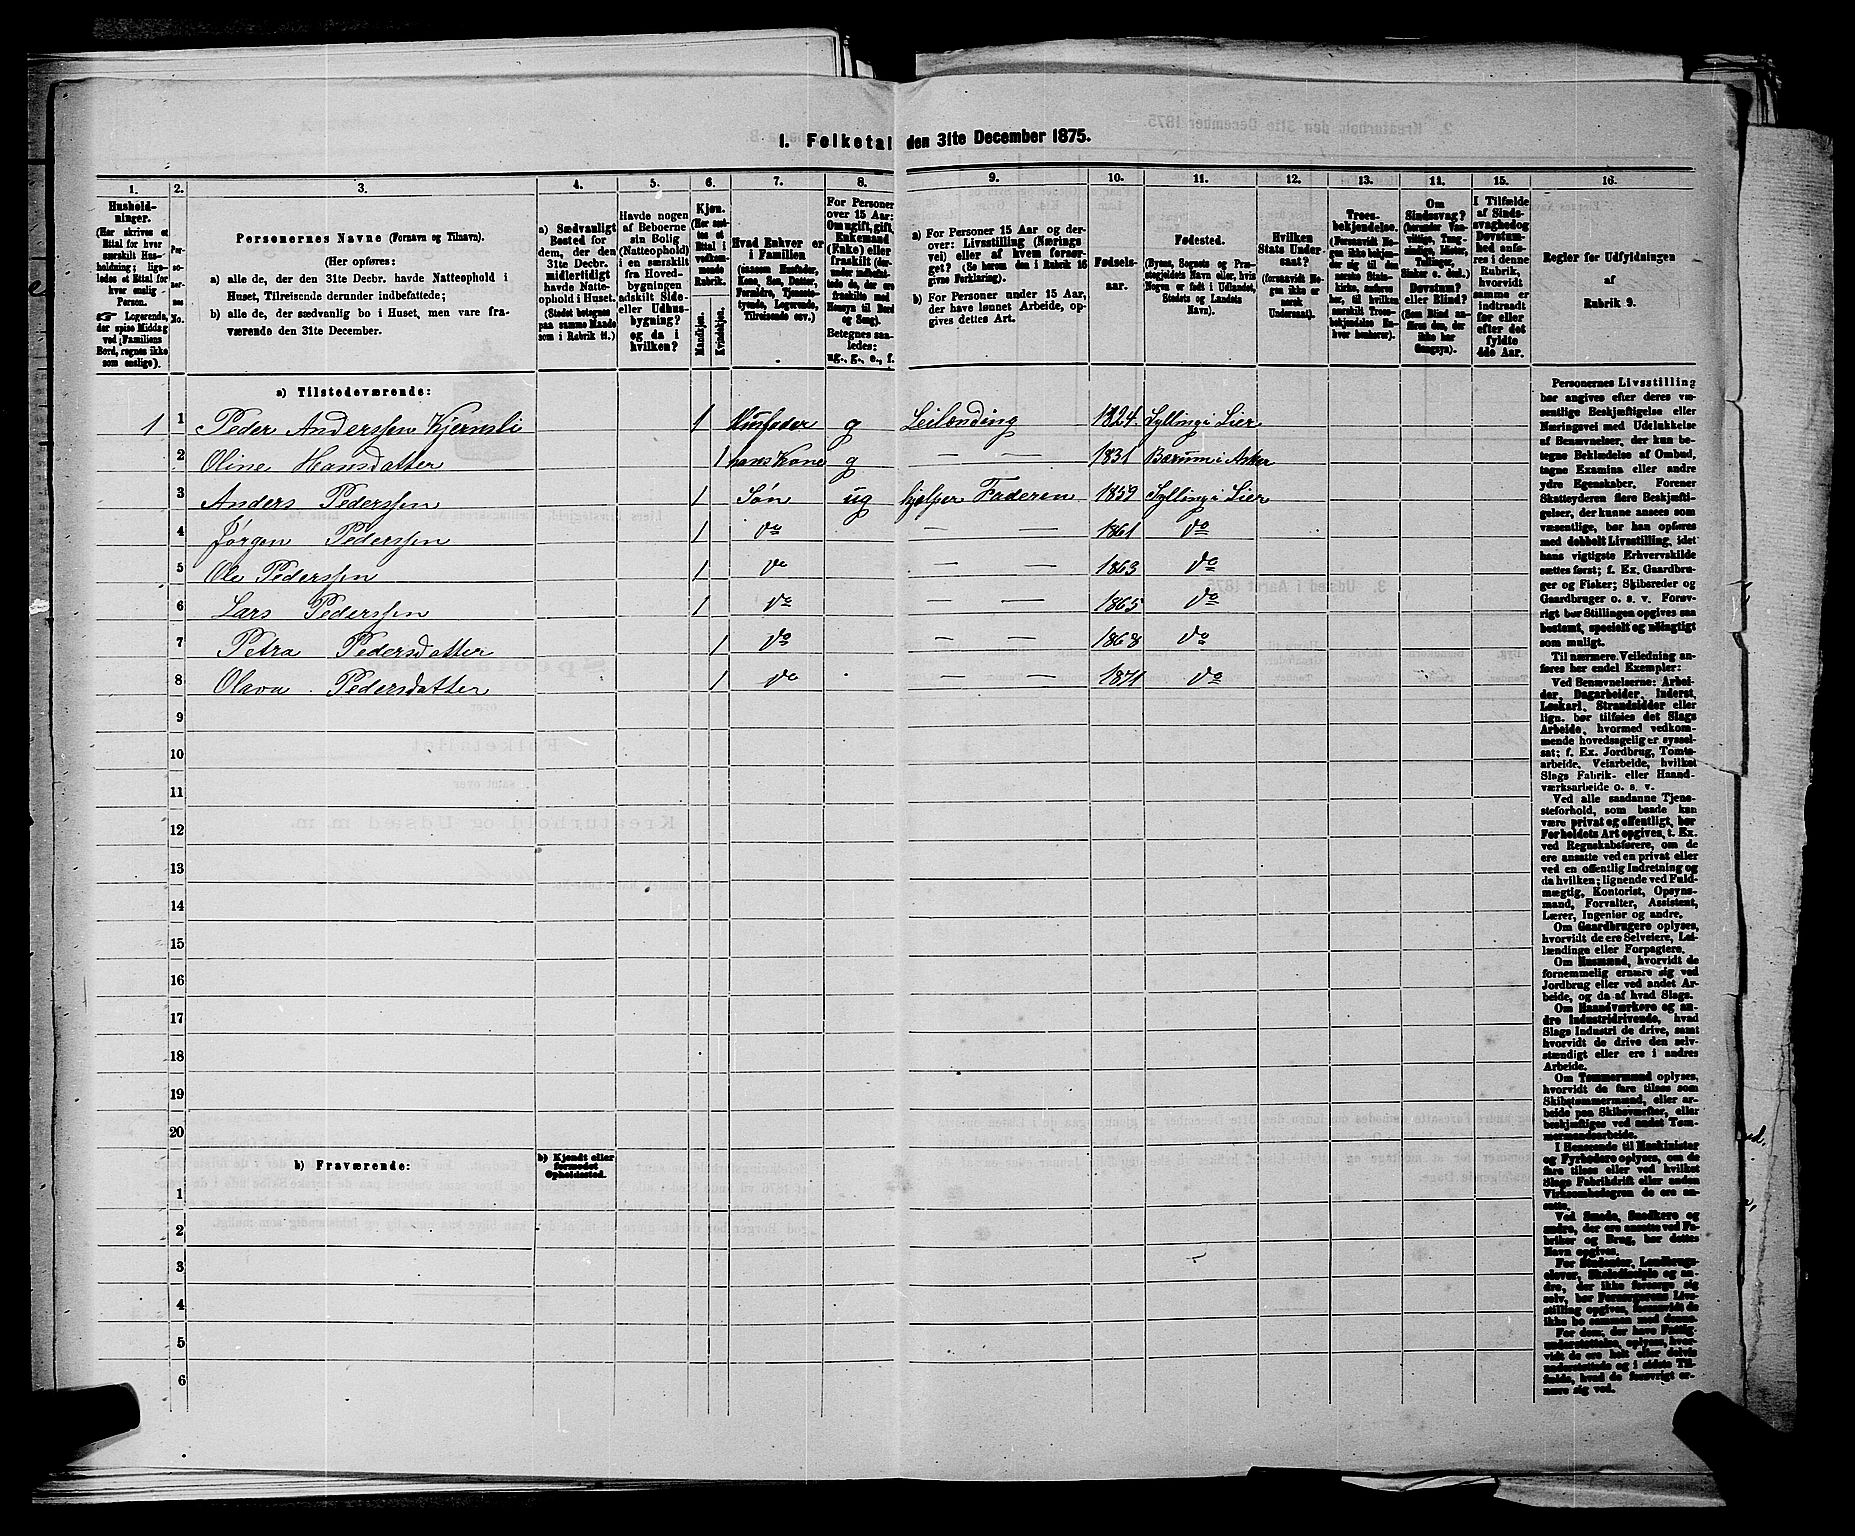 1. Folketal den 31te December 1875.
1. 2. 3. 4. 5. 6. 7. 8. 9. 10. 11. 12. 13. 14. 15. 16.
Personernes Navne (Fornavn og Tilnavn).
(Her opføres:
a) alle de, der den 31te Decbr. havde Natteophold i
Huset, Tilreisende derunder indbefattede;
b) alle de, der sædvanlig bo i Huset, men vare fra-
værende den 31te December.
a) Sædvanligt
Bosted for
dem, der den
31te Decbr.
midlertidigt
havde Natte-
ophold i Huset.
Havde nogen
af Beboerne
sin Bolig
(Natteophold)
i en særskilt
fra Hoved-
bygningen
adskilt Side-
eller Udhus-
bygning?
og da i
hvilken?
Kjøn.
Mandkjøn.
Kvindekjøn.
Hvad Enhver er
i Familien
For Personer
over 15 Aar:
Om ugift, gift,
Enkemand
(Enke) eller
fraskilt
Betegnes saa-
ledes:
ug., g., e., f.
a) For Personer 15 Aar og der-
over: Livsstilling (Nærings-
vei) eller af hvem forsør-
get? (Se herom den i Rubrik 16
givne Forklaring).
b) For Personer under 15 Aar,
der have lønnet Arbeide, op-
gives dettes Art.
Fødsels-
aar.
Fødested.
(Byens, Sognets og Præ-
stegjeldets Navn eller, hvis
Nogen er født i Udlandet,
Stedets og Landets
Navn).
Hvilken
Stats Under-
saat?
Troes-
bekjendelse.
Om
Sindssvag?
Døvstum?
eller Blind?
I Tilfælde
af Sinds-
svaghed og
Døvstum-
hed anfø-
res i denne
Rubrik,
hvorvidt
samme er
indtraadt
før eller
efter det
fyldte
4de Aar.
Regler for Udfyldningen
af
Rubrik 9.
a) Tilstedeværende:
1 1 Peder Anderssen Kjernsli 1 Husfader g Leilending 1824 Sylling i Lier
2 Oline Hansdatter 1 hans Kone g — — 1831 Bærum i Asker
3 Anders Pederssen 1 Søn ug hjælper Faderen 1859 Sylling i Lier
4 Jørgen Pederssen 1 do — — 1861 do
5 Ole Pederssen 1 do — — 1863 do
6 Lars Pederssen 1 do — — 1865 do
7 Petra Pedersdatter 1 do — — 1868 do
8 Olava Pedersdatter 1 do — — 1871 do
9
10
11
12
13
14
15
16
17
18
19
20
b) Fraværende:
b) Kjendt eller
formodet
Opholdssted.
1
2
3
4
5
6
Personernes Livsstilling
bør angives efter deres væ-
sentlige Beskjæftigelse eller
Næringsvei med Udelukkelse
af Benævnelser, der kun be-
tegne Beklædelse af Ombud,
tagne Examina eller andre
ydre Egenskaber. Forener
Skatteyderen flere Beskjæfti-
gelser, der kunne ansees som
væsentlige, bør han opføres
med dobbelt Livsstilling, idet
hans vigtigste Erhvervskilde
sættes først; f. Ex. Gaardbru-
ger og Fisker; Skibsreder og
Gaardbruger o. s. v. Forøv-
rigt bør Stillingen opgives saa
bestemt, specielt og nøiagtigt
som muligt.
Til nærmere Veiledning an-
føres her endel Exempler:
Ved Benævnelserne: Arbei-
der, Dagarbeider, Inderst,
Løskarl, Strandsidder eller
lign. bør tilføies det Slags
Arbeide, hvormed vedkom-
mende hovedsagelig er syssel-
sat; f. Ex. Jordbrug, Tomte-
arbeide, Veiarbeide, hvilket
Slags Fabrik- eller Haand-
værksarbeide o. s. v.
Ved alle saadanne Tjene-
steforhold, som baade kan
være privat og offentligt, bør
Forholdets Art opgives, t. Ex.
ved Regnskabsførere, om de
ere ansatte ved en privat eller
ved en offentlig Indretning og
da hvilken; lignende ved Fuld-
mægtig, Kontorist, Opsyns-
mand, Forvalter, Assistent,
Lærer, Ingeniør og andre.
Om Gaardbrugere oplyses,
hvorvidt de ere Selveiere, Lei-
lændinge eller Forpagtere.
Om Husmænd, hvorvidt de
fornemmelig ernære sig ved
Jordbrug eller ved andet Ar-
beide, og da af hvad Slags.
Om Haandværkere og an-
dre Industridrivende, hvad
Slags Industri de drive, samt
hvorvidt de drive den selv-
stændigt eller ere i andres
Arbeide.
Om Tømmermænd oplyses,
hvorvidt de fare tilsøs som
Skibstømmermænd, eller ar-
beide paa Skibsværfter, eller
beskjæftiges ved andet Tøm-
mermandsarbeide.
I Henseende til Maskinister
og Fyrbødere oplyses, om de
fare tilsøs eller ved hvilket
Slags Fabrikdrift eller anden
Virksomhedsgren de ere an-
satte.
Ved Smede, Snedkere og
andre, der ere ansatte ved Fa-
briker og Brug, bør dettes
Navn opgives.
For Studenter, Landbrugs-
elever, Skoledisciple og an-
dre, der ikke forsørge sig
selv, bør Forsørgerens Livs-
stilling opgives, forsaavidt de
ikke bo sammen med denne.
For dem, der have Fattig-
understøttelse, oplyses, hvor-
vidt de ere helt eller delvis
understøttede og i sidste Til-
fælde, hvad de forøvrigt er-
nære sig ved.